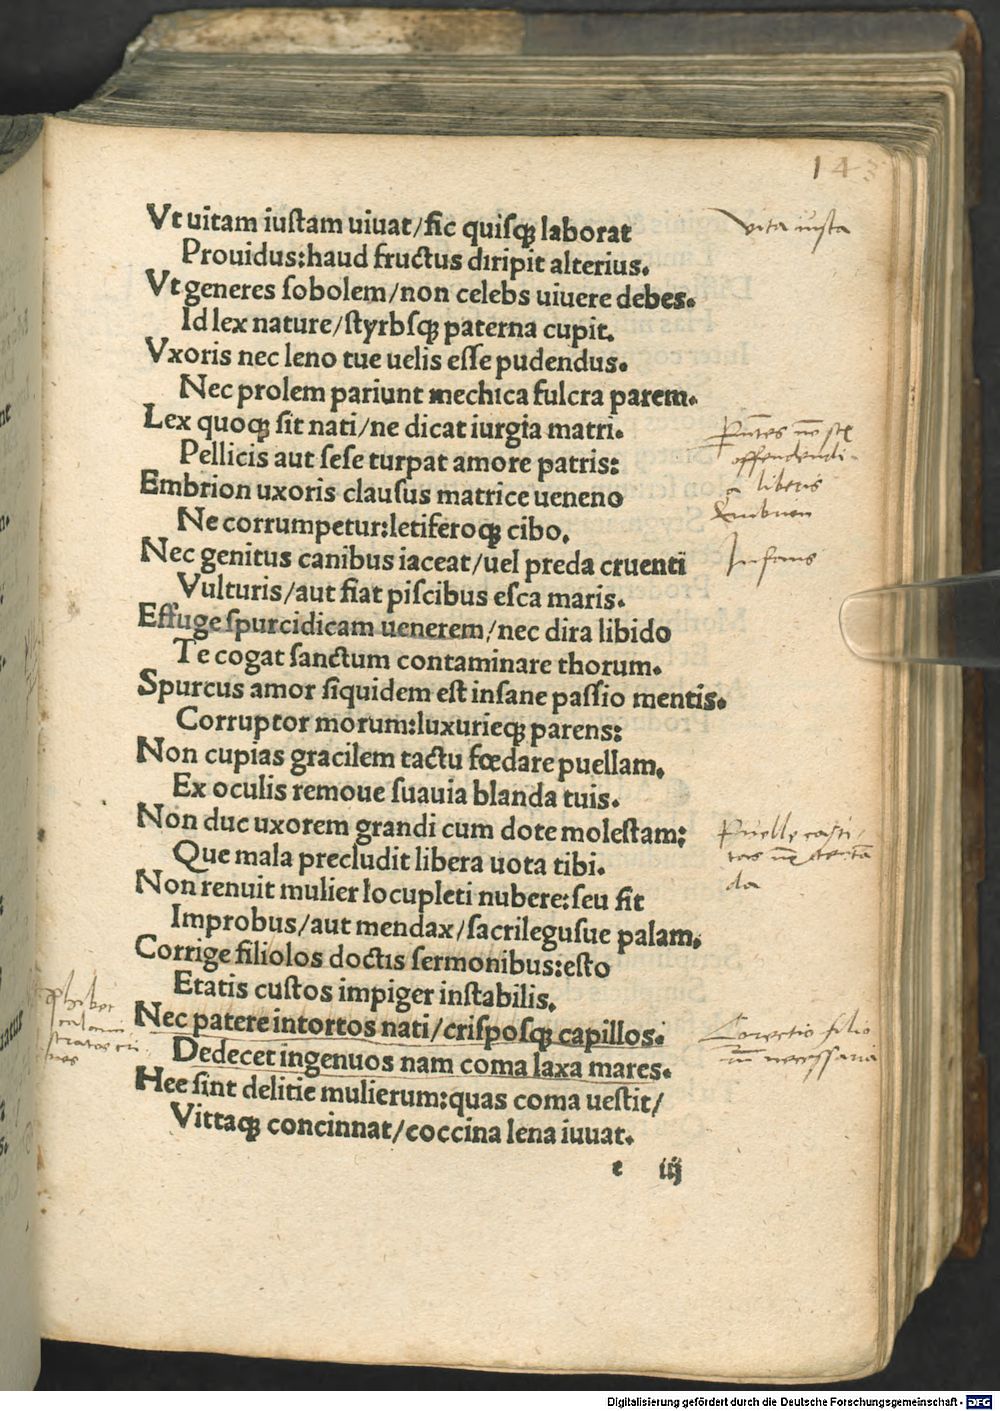 143
Vt uitam iustam uiuat/sic quisqꝫ laborat
Prouidus:haud fructus diripit alterius.
Vt generes sobolem/non celebs uiuere debes.
Id lex nature/styrbsqꝫ paterna cupit.
Vxoris nec leno tue uelis esse pudendus.
Nec prolem pariunt mechica fulcra parem.
Lex quoqꝫ sit nati/ne dicat iurgia matri.
Pellicis aut sese turpat amore patris:
Embrion uxoris clausus matrice ueneno
Ne corrumpetur:letiferoqꝫ cibo.
Nec genitus canibus iaceat/uel preda cruenti
Vulturis/aut fiat piscibus esca maris.
Effuge spurcidicam uenerem/nec dira libido
Te cogat sanctum contaminare thorum.
Spurcus amor siquidem est insane passio mentis.
Corruptor morum:luxurieqꝫ parens:
Non cupias gracilem tactu fœdare puellam.
Ex oculis remoue suauia blanda tuis.
Non duc uxorem grandi cum dote molestam:
Que mala precludit libera uota tibi.
Non renuit mulier locupleti nubere:seu sit
Improbus/aut mendax/sacrilegusue palam.
Corrige filiolos doctis sermonibus:esto
Etatis custos impiger instabilis.
Nec patere intortos nati/crisposqꝫ capillos.
Dedecet ingenuos nam coma laxa mares.
Hee sint delitie mulierum:quas coma uestit/
Vittaqꝫ concinnat/coccina lena iuuat.
e iij
vita iusta
offendendi
liberis
Embrion
Infans
Puelle casti
tas
da
Correctio filio
necessaria
Digitalisierung gefördert durch die Deutsche Forschungsgemeinschaft - DFG